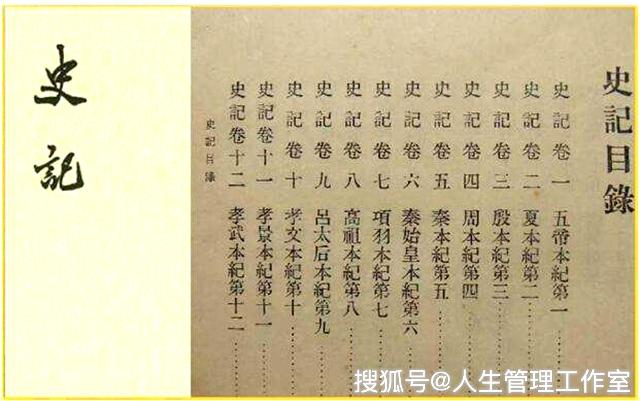 史記
史記目錄
史記卷一 五帝本紀第一……
史記卷二 夏本紀第二……
史記卷三 殷本紀第三……
史記卷四 周本紀第四……
史記卷五 秦本紀第五……
史記卷六 秦始皇本紀第六……
史記卷七 項羽本紀第七……
史記卷八 高祖本紀第八……
史記卷九 呂太后本紀第九……
史記卷十 孝文本紀第十……
史記卷十一 孝景本紀第十一……
史記卷十二 孝武本紀第十二……
史記目錄
搜狐号@人生管理工作室